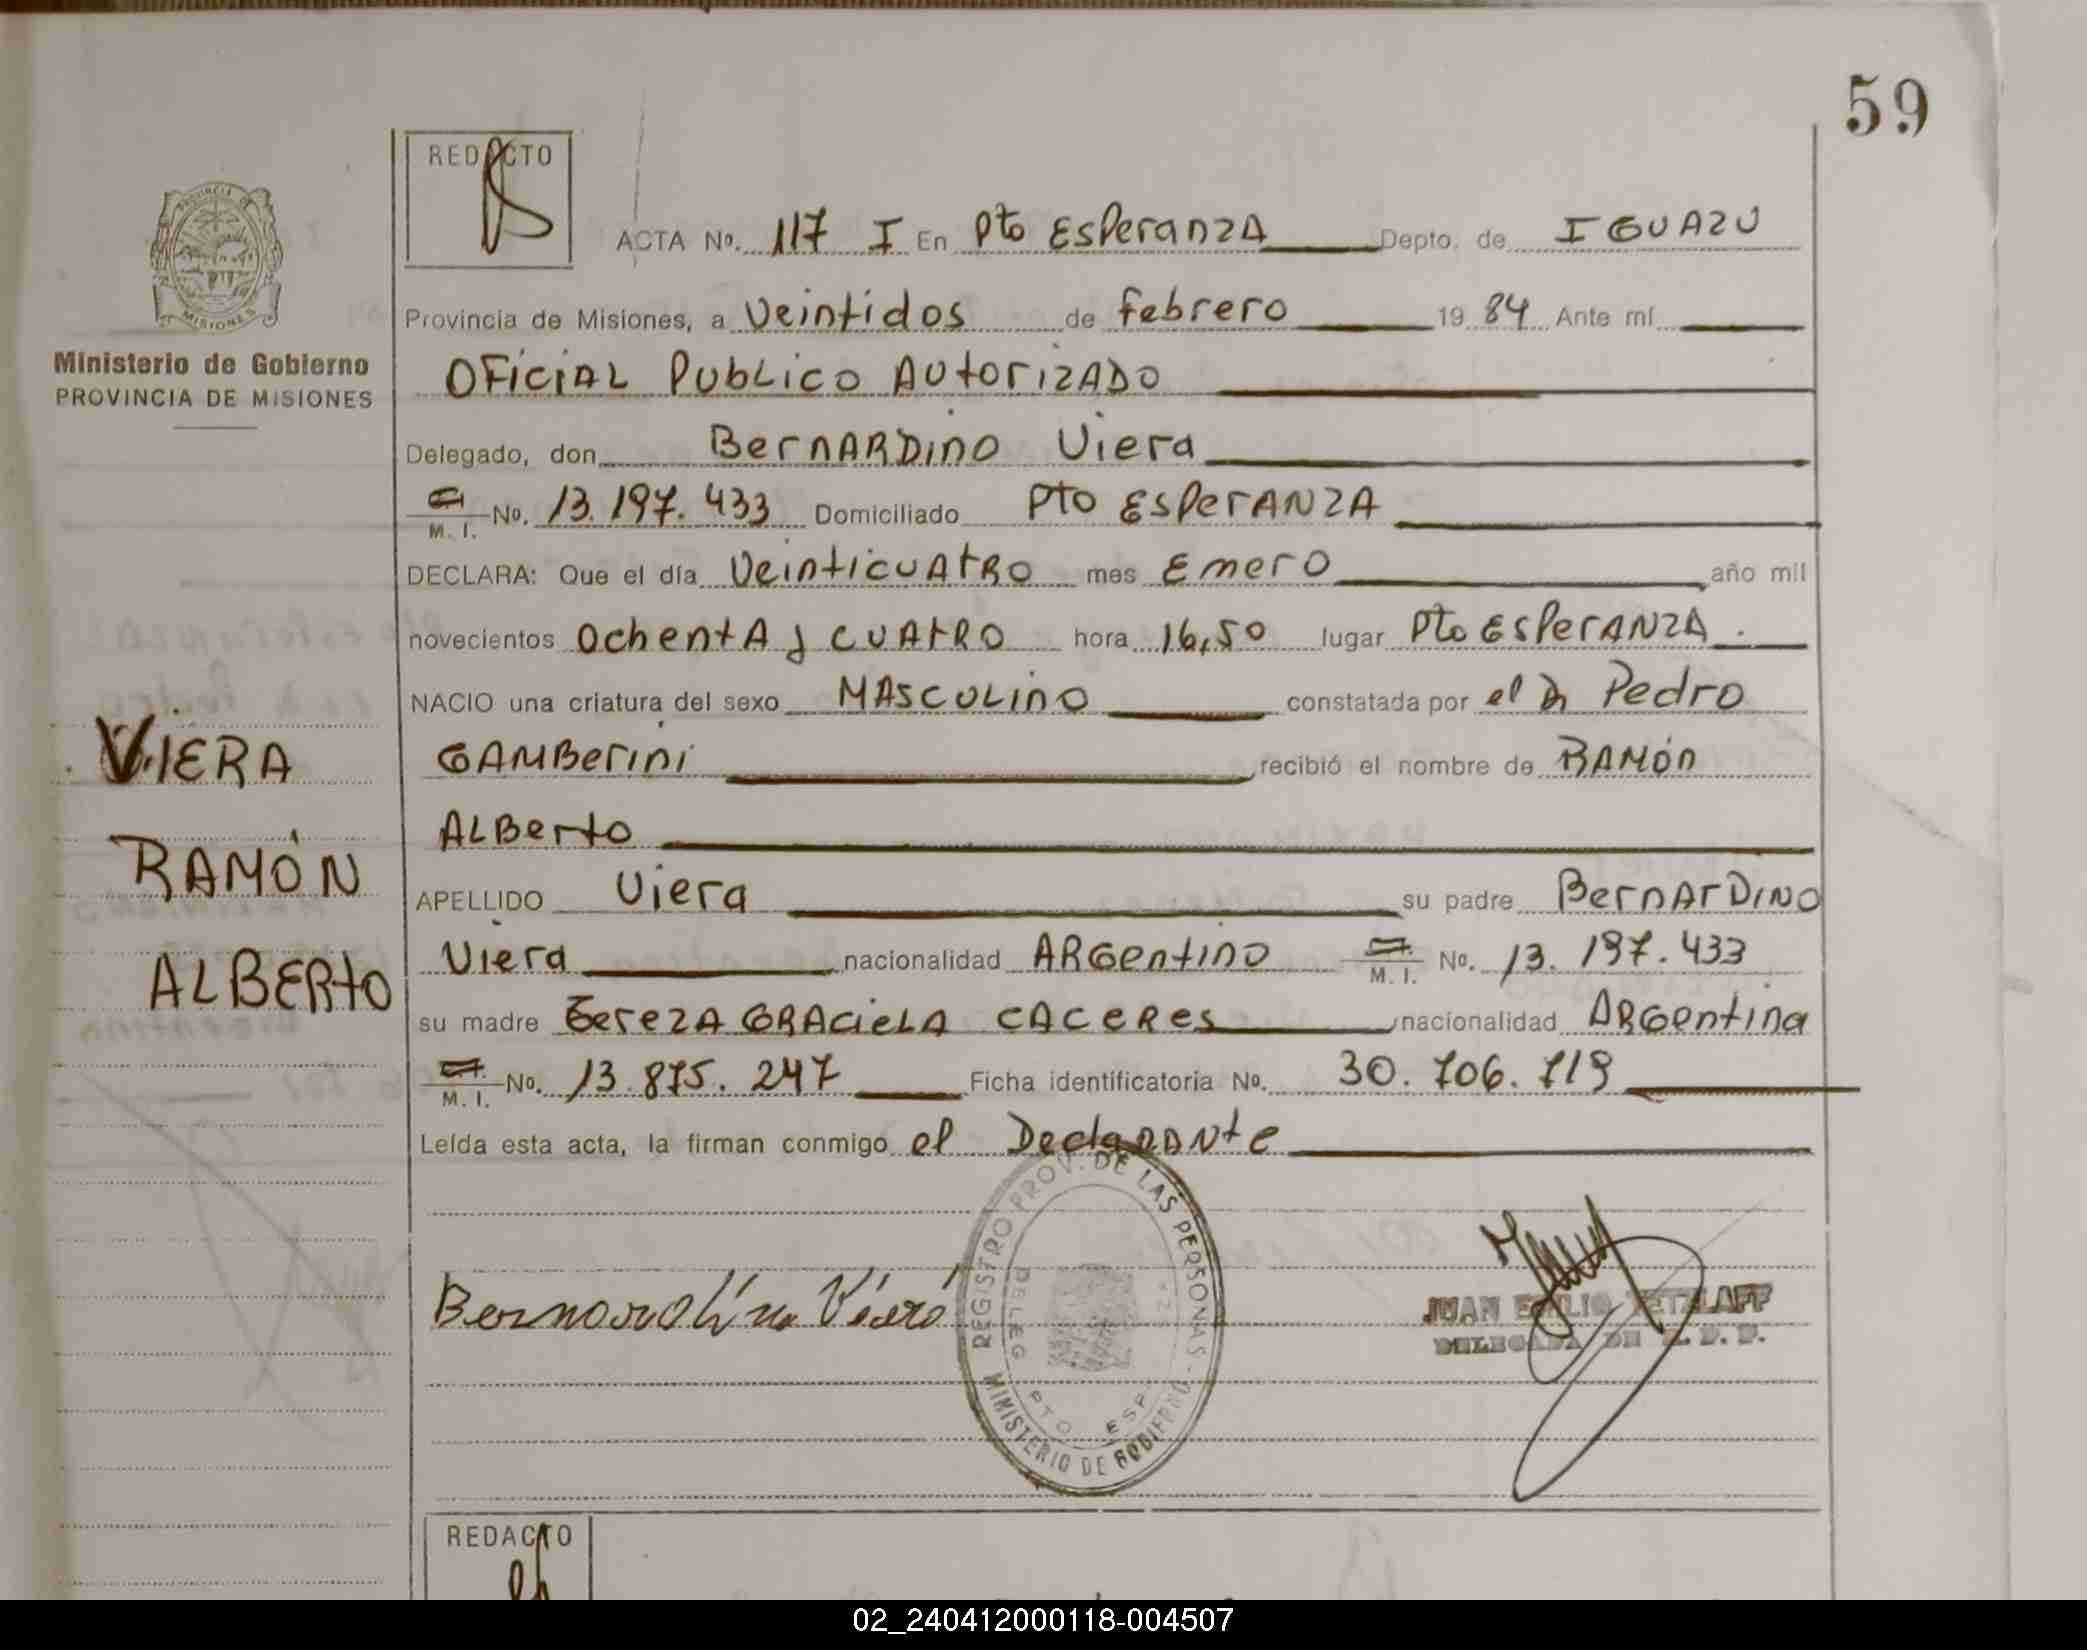 59
REDACTO
ACTA No. 117 I En Pto Esperanza Depto. de IGUAZU
Provincia de Misiones, a Veintidos de febrero 19 84 Ante mí
OFiciAL PubLico AutorizADO
Ministerio de Gobierno
PROVINCIA DE MISIONES
Delegado, don BernARDino Viera
M. I. No. 13.197.433 Domiciliado Pto EsperANZA
DECLARA: Que el día VeinticuAtRo mes Emero año mil
novecientos OchentA y CUAtRO hora 16,50 lugar Pto EsperANZA.
NACIO una criatura del sexo MAScULino constatada por el Dr Pedro
GAMBerini recibió el nombre de RAMón
ALBerto
VIERA
RAMÓN
ALBERtO
APELLIDO Viera su padre BernArDiNO
Viera nacionalidad ARGentino M. I. No. 13.197.433
su madre TerezA GRAcieLA CACERes nacionalidad ARGentina
M. I. No. 13.875.247 Ficha identificatoria No. 30.706.719
Leída esta acta, la firman conmigo el DeclaRANte
REGISTRO PROV. DE LAS PERSONAS - MINISTERIO DE GOBIERNO
DELEG PTO ESP
Bernardino Viera
JUAN EMILIO TETZLAFF
DELEGADA DE R. P. P.
REDACTO
02_240412000118-004507